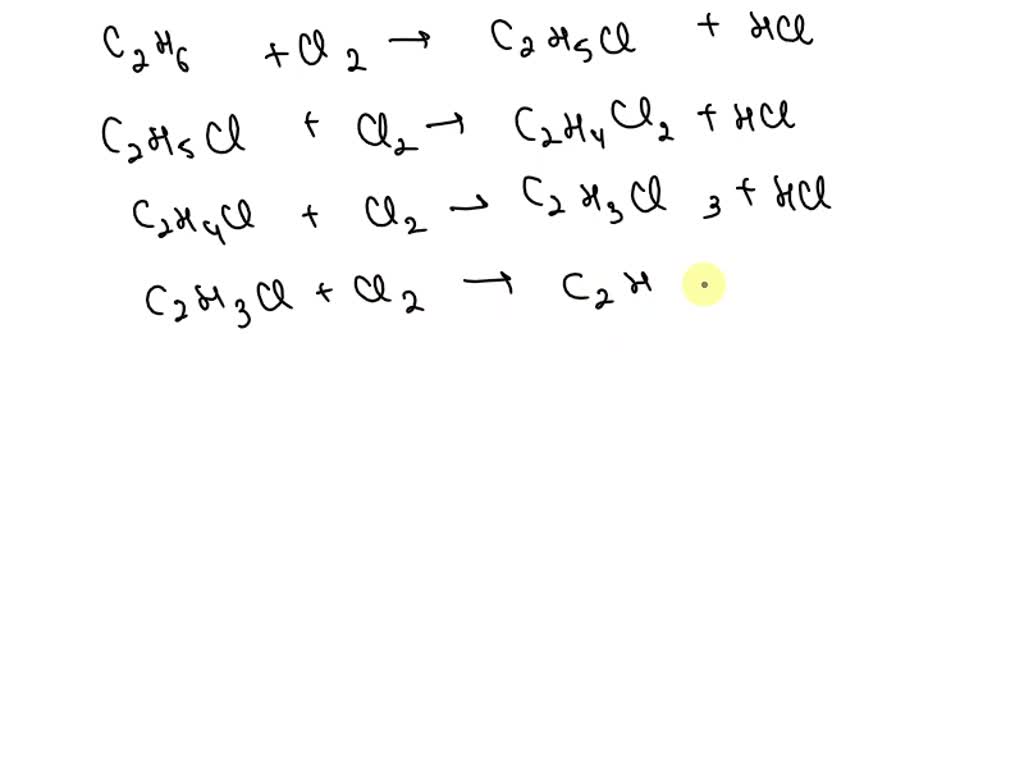 C₂H₆ + Cl₂ → C₂H₅Cl + HCl
C₂H₅Cl + Cl₂ → C₂H₄Cl₂ + HCl
C₂H₄Cl + Cl₂ → C₂H₃Cl₃ + HCl
C₂H₃Cl + Cl₂ → C₂H